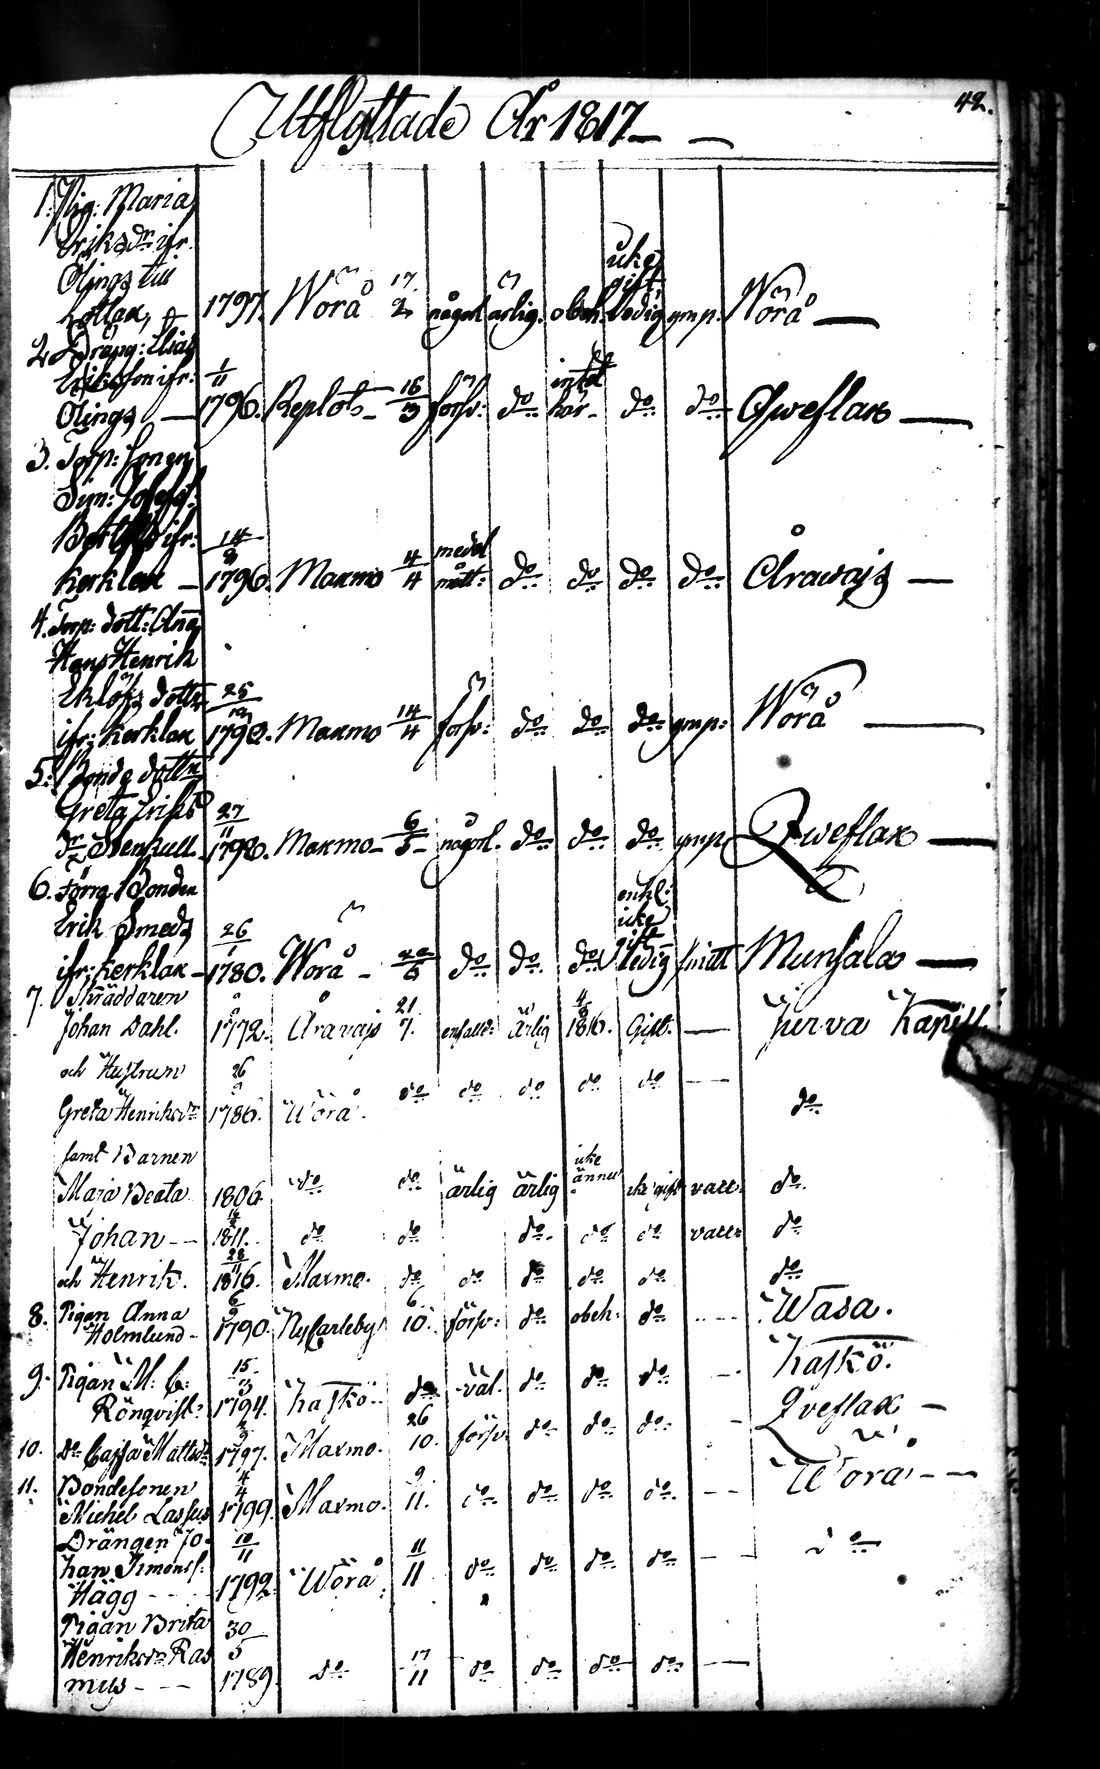 42.
Utflyttade År 1817
1. Pig: Maria
Eriksdr ifr.
Olings till
1797. Wörå 17/2 någorl ärlig. obeh. icke gift ledig ymp. Wörå
2. Dräng: Elias
Eriksson ifr:
Olings 1/11 1796. Replot 16/3 förfv: do intet här do do Qweflax
3. Torp: Sonen
Sim: Josefss:
ifr:
Kerklax 14/8 1796. Maxmo 4/4 medel mått: do do do do Årawajs
4. Torp: dott: Ana
Hans Henrik
Eklöfs dotter
ifr: Kerklax 25/12 1790. Maxmo 14/4 försv: do do do ymp: Wörå
5. Bonde dottr
Greta Eriks
dr 27/11 1790. Maxmo 6/5 någorl. do do do ymp: Qweflax
6. Förra Bonden
Erik Smeds
ifr: Kerklax 26/1 1780. Wörå 22/6 do do do enkl: icke gift ledig Munsala
7. Skräddaren
Johan Dahl. 1772. Åravajs 21/7. enfald: Ärlig 4/8 1816. Gift. Jurva Kapell
och Hustrun
Greta Henriksdr 26 1786. Wörå do do do do do do
samt Barnen
Maja Beata 1806 do do ärlig ärlig icke ännu icke gift vacc. do
Johan 1811. do do do do do vacc. do
och Henrik. 28/11 1816. Maxmo. do do do do do do
8. Pigan Anna
Holmlund 6/9 1790. NyCarleby 6/10. försv: do obeh: do Wasa.
9. Pigan M: C:
Rönqvist: 15/3 1794. Kaskö do väl. do do do Kaskö.
10. do Cajsa Mattsdr 1797. Maxmo. 26/10. försv do do do Qveflax
11. Bondesonen
Michel Lassus 4/4 1799. Maxmo. 9/11. do do do do Wörå
Drängen Jo-
han Simonss:
Hägg 10/11 1792 Wörå 11/11 do do do do do
Pigan Brita
Henriksdr Ras
mus 30/5 1789. do 17/11 do do do do